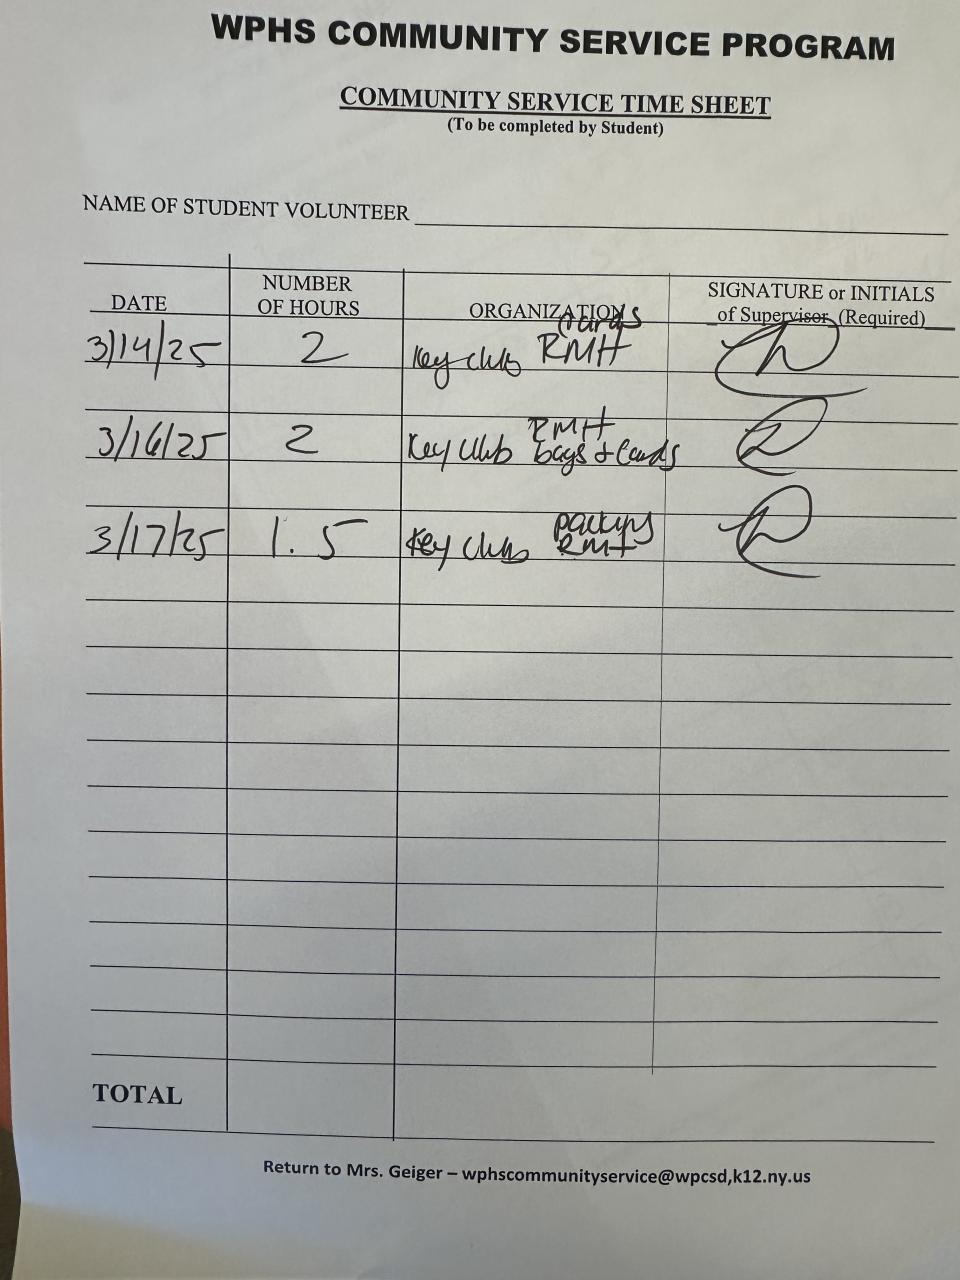 WPHS COMMUNITY SERVICE PROGRAM
COMMUNITY SERVICE TIME SHEET
(To be completed by Student)
NAME OF STUDENT VOLUNTEER
DATE
NUMBER
OF HOURS
ORGANIZATION
SIGNATURE or INITIALS
of Supervisor (Required)
3/14/25 2 Key club cards RMH
3/16/25 2 Key Club RMH
bags + Cards
3/17/25 1.5 Key club
RMH
TOTAL
Return to Mrs. Geiger – wphscommunityservice@wpcsd,k12.ny.us